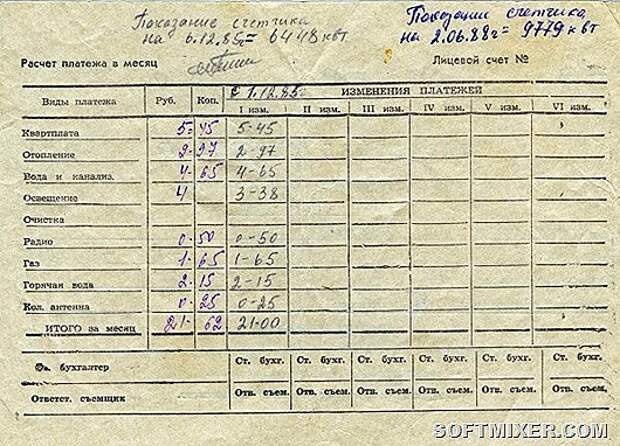 Показание счетчика
на 6.12.85г = 6448 квт
Показании счетчика,
на 2.06.88г = 9779 квт
Расчет платежа в месяц
Лицевой счет №
Виды платежа Руб. Коп. С 1.12.85г. ИЗМЕНЕНИЯ ПЛАТЕЖЕЙ
I изм. II изм. III изм. IV изм. V изм. VI изм.
Квартплата 5-45 5-45
Отопление 2-97 2-97
Вода и канализ. 4-65 4-65
Освещение 4 3-38
Очистка
Радио 0-50 0-50
Газ 1-65 1-65
Горячая вода 2-15 2-15
Кол. антенна 0-25 0-25
ИТОГО за месяц 21-62 21-00
бухгалтер Ст. бухг. Ст. бухг. Ст. бухг. Ст. бухг. Ст. бухг. Ст. бухг.
Ответст. съемщик Отв. съем. Отв. съем. Отв. съем. Отв. съем. Отв. съем. Отв. съем.
SOFTMIXER.COM